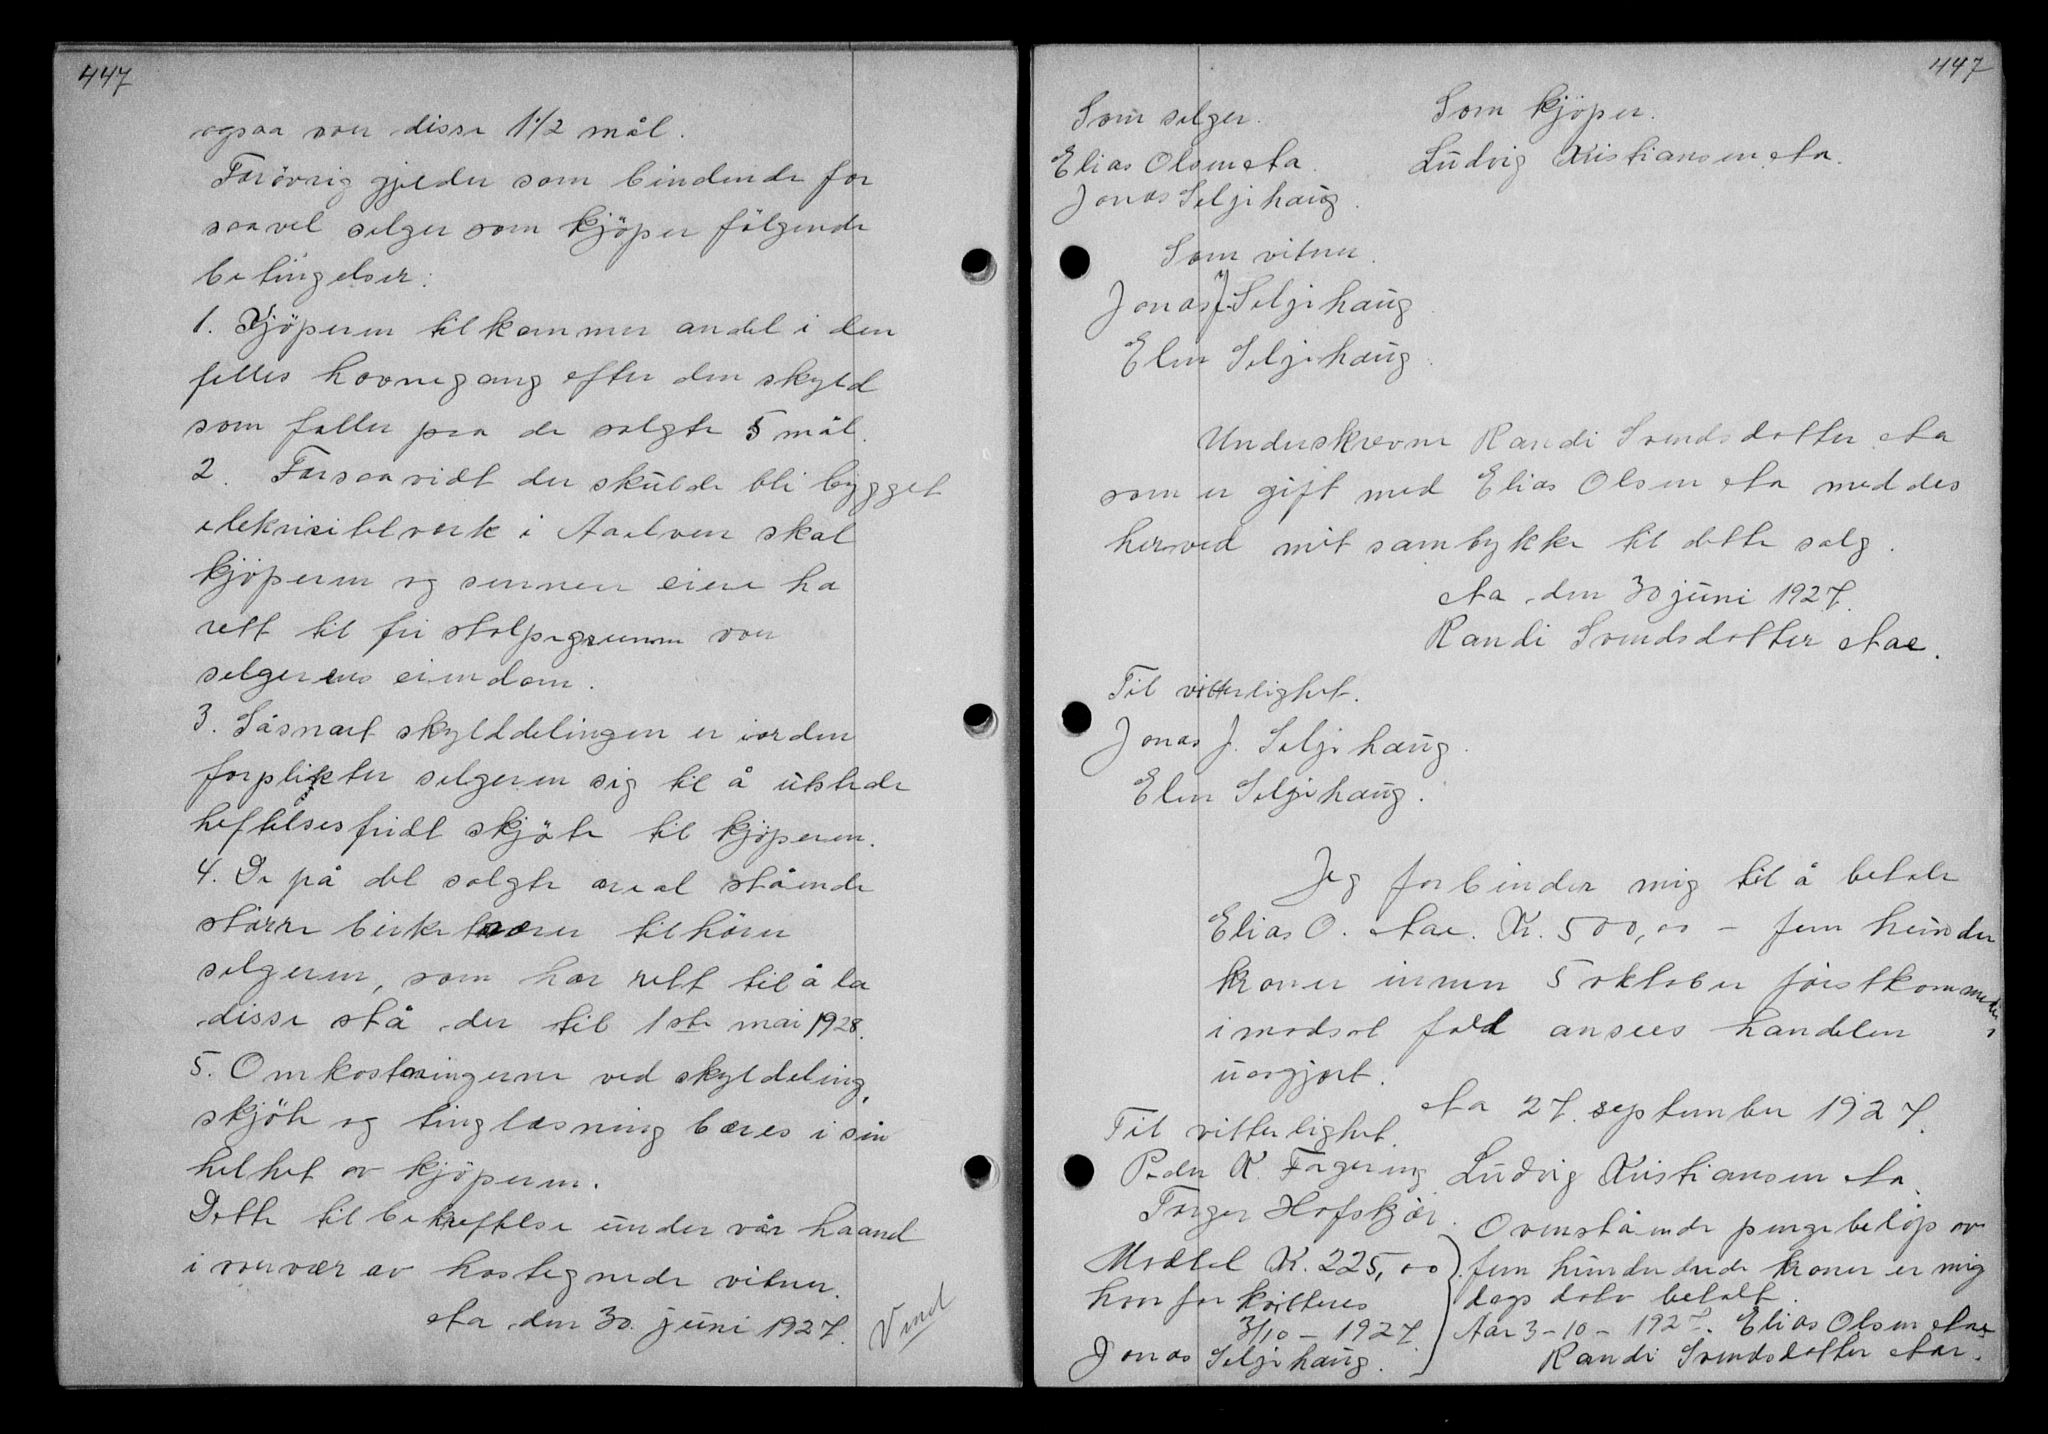 447
ogsaa over disse 1 1/2 mål.
Forövrig gjelder som bindende for
saavel selger som kjöper fölgende
betingelser:
1. Kjöperen tilkommer andel i den
felles havnegang efter den skyld
som faller paa de solgte 5 mål.
2. Forsaavidt der skulde bli bygget
elektrisitetverk i Aaelven skal
kjöperen og sennere eiere ha
rett til fri stolpegrunn over
selgerens eiendom.
3. Såsnart skylddelingen er iorden
forplikter selgeren sig til å utstede
heftelsesfridt skjöte til kjöperen.
4. De på det solgte areal stående
större birketrærer tilhörer
selgeren, som har rett til å la
disse stå der til 1ste mai 1928.
5. Omkostningerne ved skyldeling,
skjöte og tinglæsning bæres i sin
helhet av kjöperen.
Dette til bekreftelse under vår haand
i overvær av hostegnede vitner.
Aa den 30. juni 1927.
Vend
447
Som selger. Som kjöper.
Elias Olsen Aa. Ludvig Kristiansen Aa.
Jonas Seljehaug.
Som vitner.
Jonas J. Seljehaug
Elen Seljehaug.
Underskrevne Randi Svendsdotter Aa
som er gift med Elias Olsen Aa meddes
herved mit samtykke til dette salg.
Aa den 30 juni 1927.
Randi Svendsdotter Aae.
Til vitterlighet.
Jonas J. Seljehaug.
Elen Seljehaug.
Jeg forbinder mig til å betale
Elias O. Aae. Kr. 500,00 - fem hundere
kroner innen 5 oktober förstkommende,
i modsat fald ansees handelen
uavgjort.
Aa 27. september 1927.
Til vitterlighet.
Peder K. Fagereng Ludvig Kristiansen Aa.
Torger Hofskjær. Ovenstående pengebelöp av
Mottat Kr. 225,00 fem hunderdrede kroner er mig
hvorfor kvitteres dags dato betalt.
3/10 - 1927. Aae 3-10-1927. Elias Olsen Aae
Jonas Seljehaug. Randi Svendsdotter Aae.